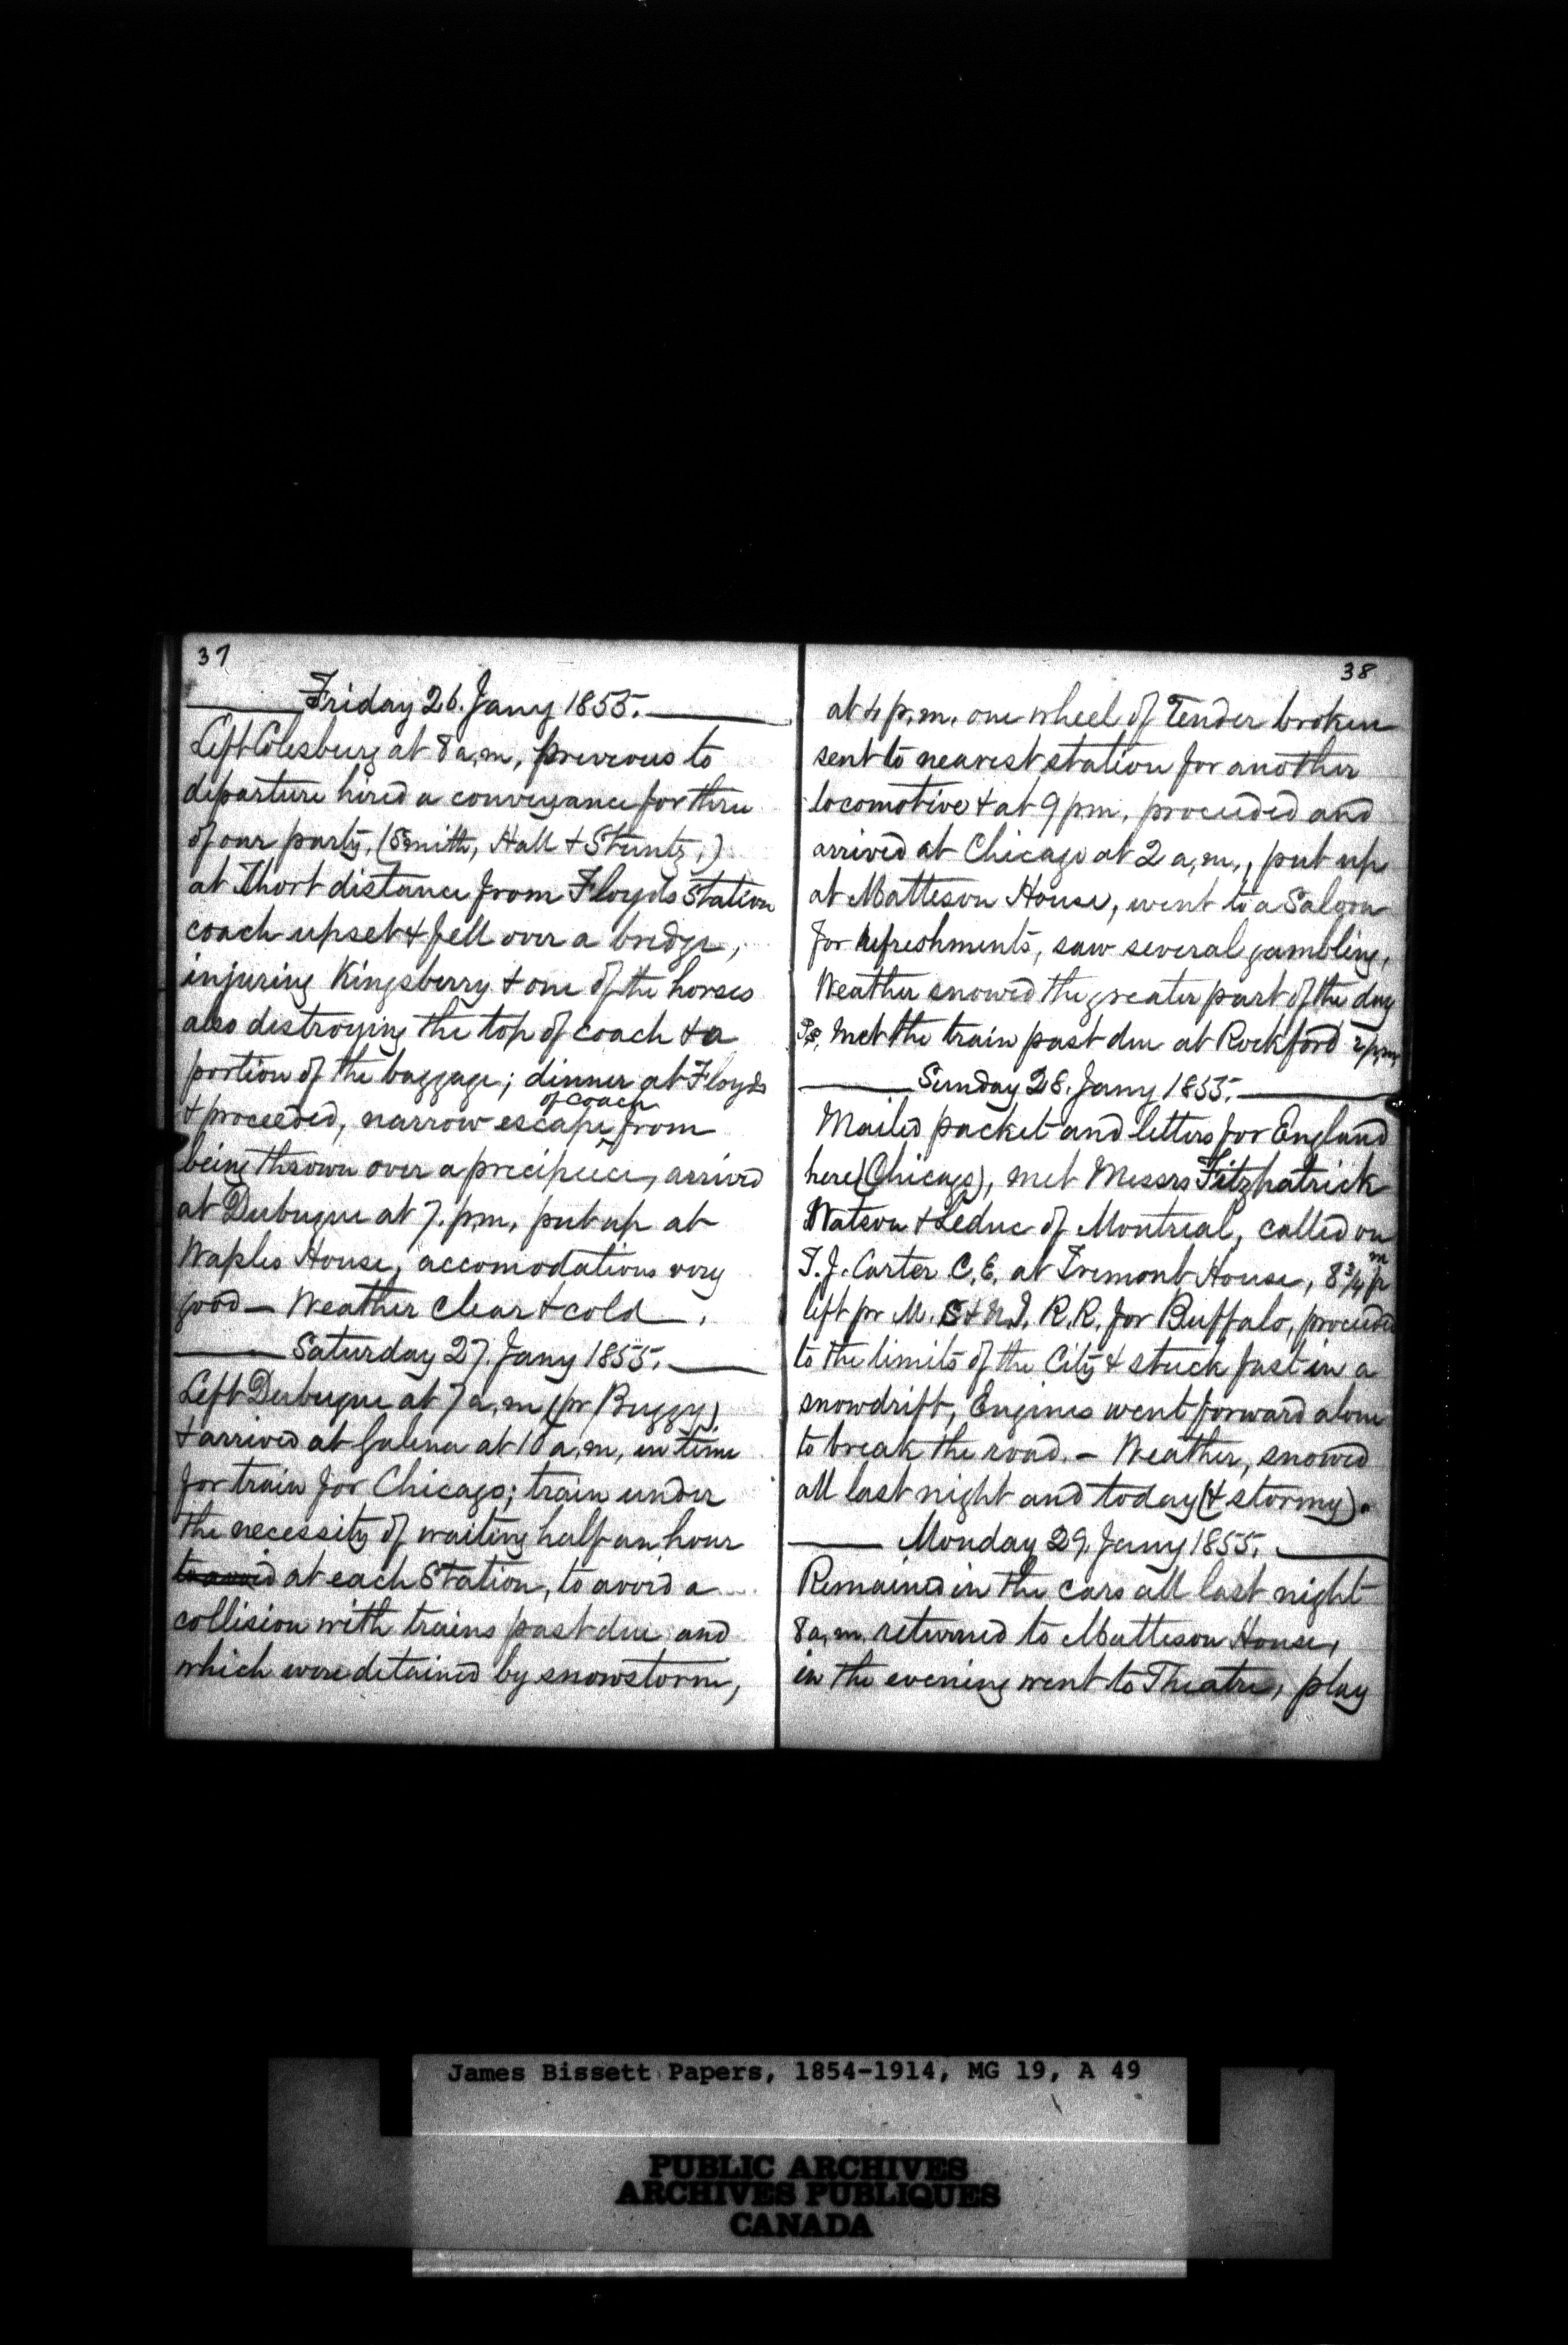 37
Friday 26. Jany 1855.
Left Colesburg at 8 a.m, previous to
departure hired a conveyance for three
of our party, (Smith, Hall & Stuntz,)
at Short distance from Floyds Station
coach upset & fell over a bridge,
injuring Kingsberry & one of the horses
also destroying the top of coach & a
portion of the baggage; dinner at Floyds
of Coach
& proceeded, narrow escape ^ from
being thrown over a precipiece, arrived
at Dubuque at 7. p.m, put up at
Waples House, accomodations very
good — Weather Clear & cold.
Saturday 27. Jany 1855.
Left Dubuque at 7 a.m (pr Buggy)
& arrived at Galena at 10 a.m, in time
for train for Chicago; train under
the necessity of waiting half an hour
to avoid at each Station, to avoid a
collision with trains past due and
which were detained by snowstorm,
38
at 4 p.m. one wheel of Tender broken
sent to nearest station for another
locomotive & at 9 pm, proceeded and
arrived at Chicago at 2 a.m., put up
at Matteson House, went to a Saloon
for refreshments, saw several gambling,
Weather snowed the greater part of the day
Ps. Met the train past due at Rockford 2 p.m,
Sunday 28. Jany 1855.
Mailed packet and letters for England
here (Chicago), met Messrs Fitzpatrick
Watson & Leduc of Montreal, called on
T. J. Carter C. E. at Tremont House, 8 3/4 pm
left pr M. S & N. I. R. R. for Buffalo, proceeded
to the limits of the City & stuck fast in a
snowdrift, Engines went forward alone
to break the road. – Weather, snowed
all last night and today (& stormy).
Monday 29. Jany 1855.
Remained in the cars all last night
8 a.m. returned to Matteson House,
in the evening went to Theatre, play
James Bissett Papers, 1854-1914, MG 19, A 49
PUBLIC ARCHIVES
ARCHIVES PUBLIQUES
CANADA